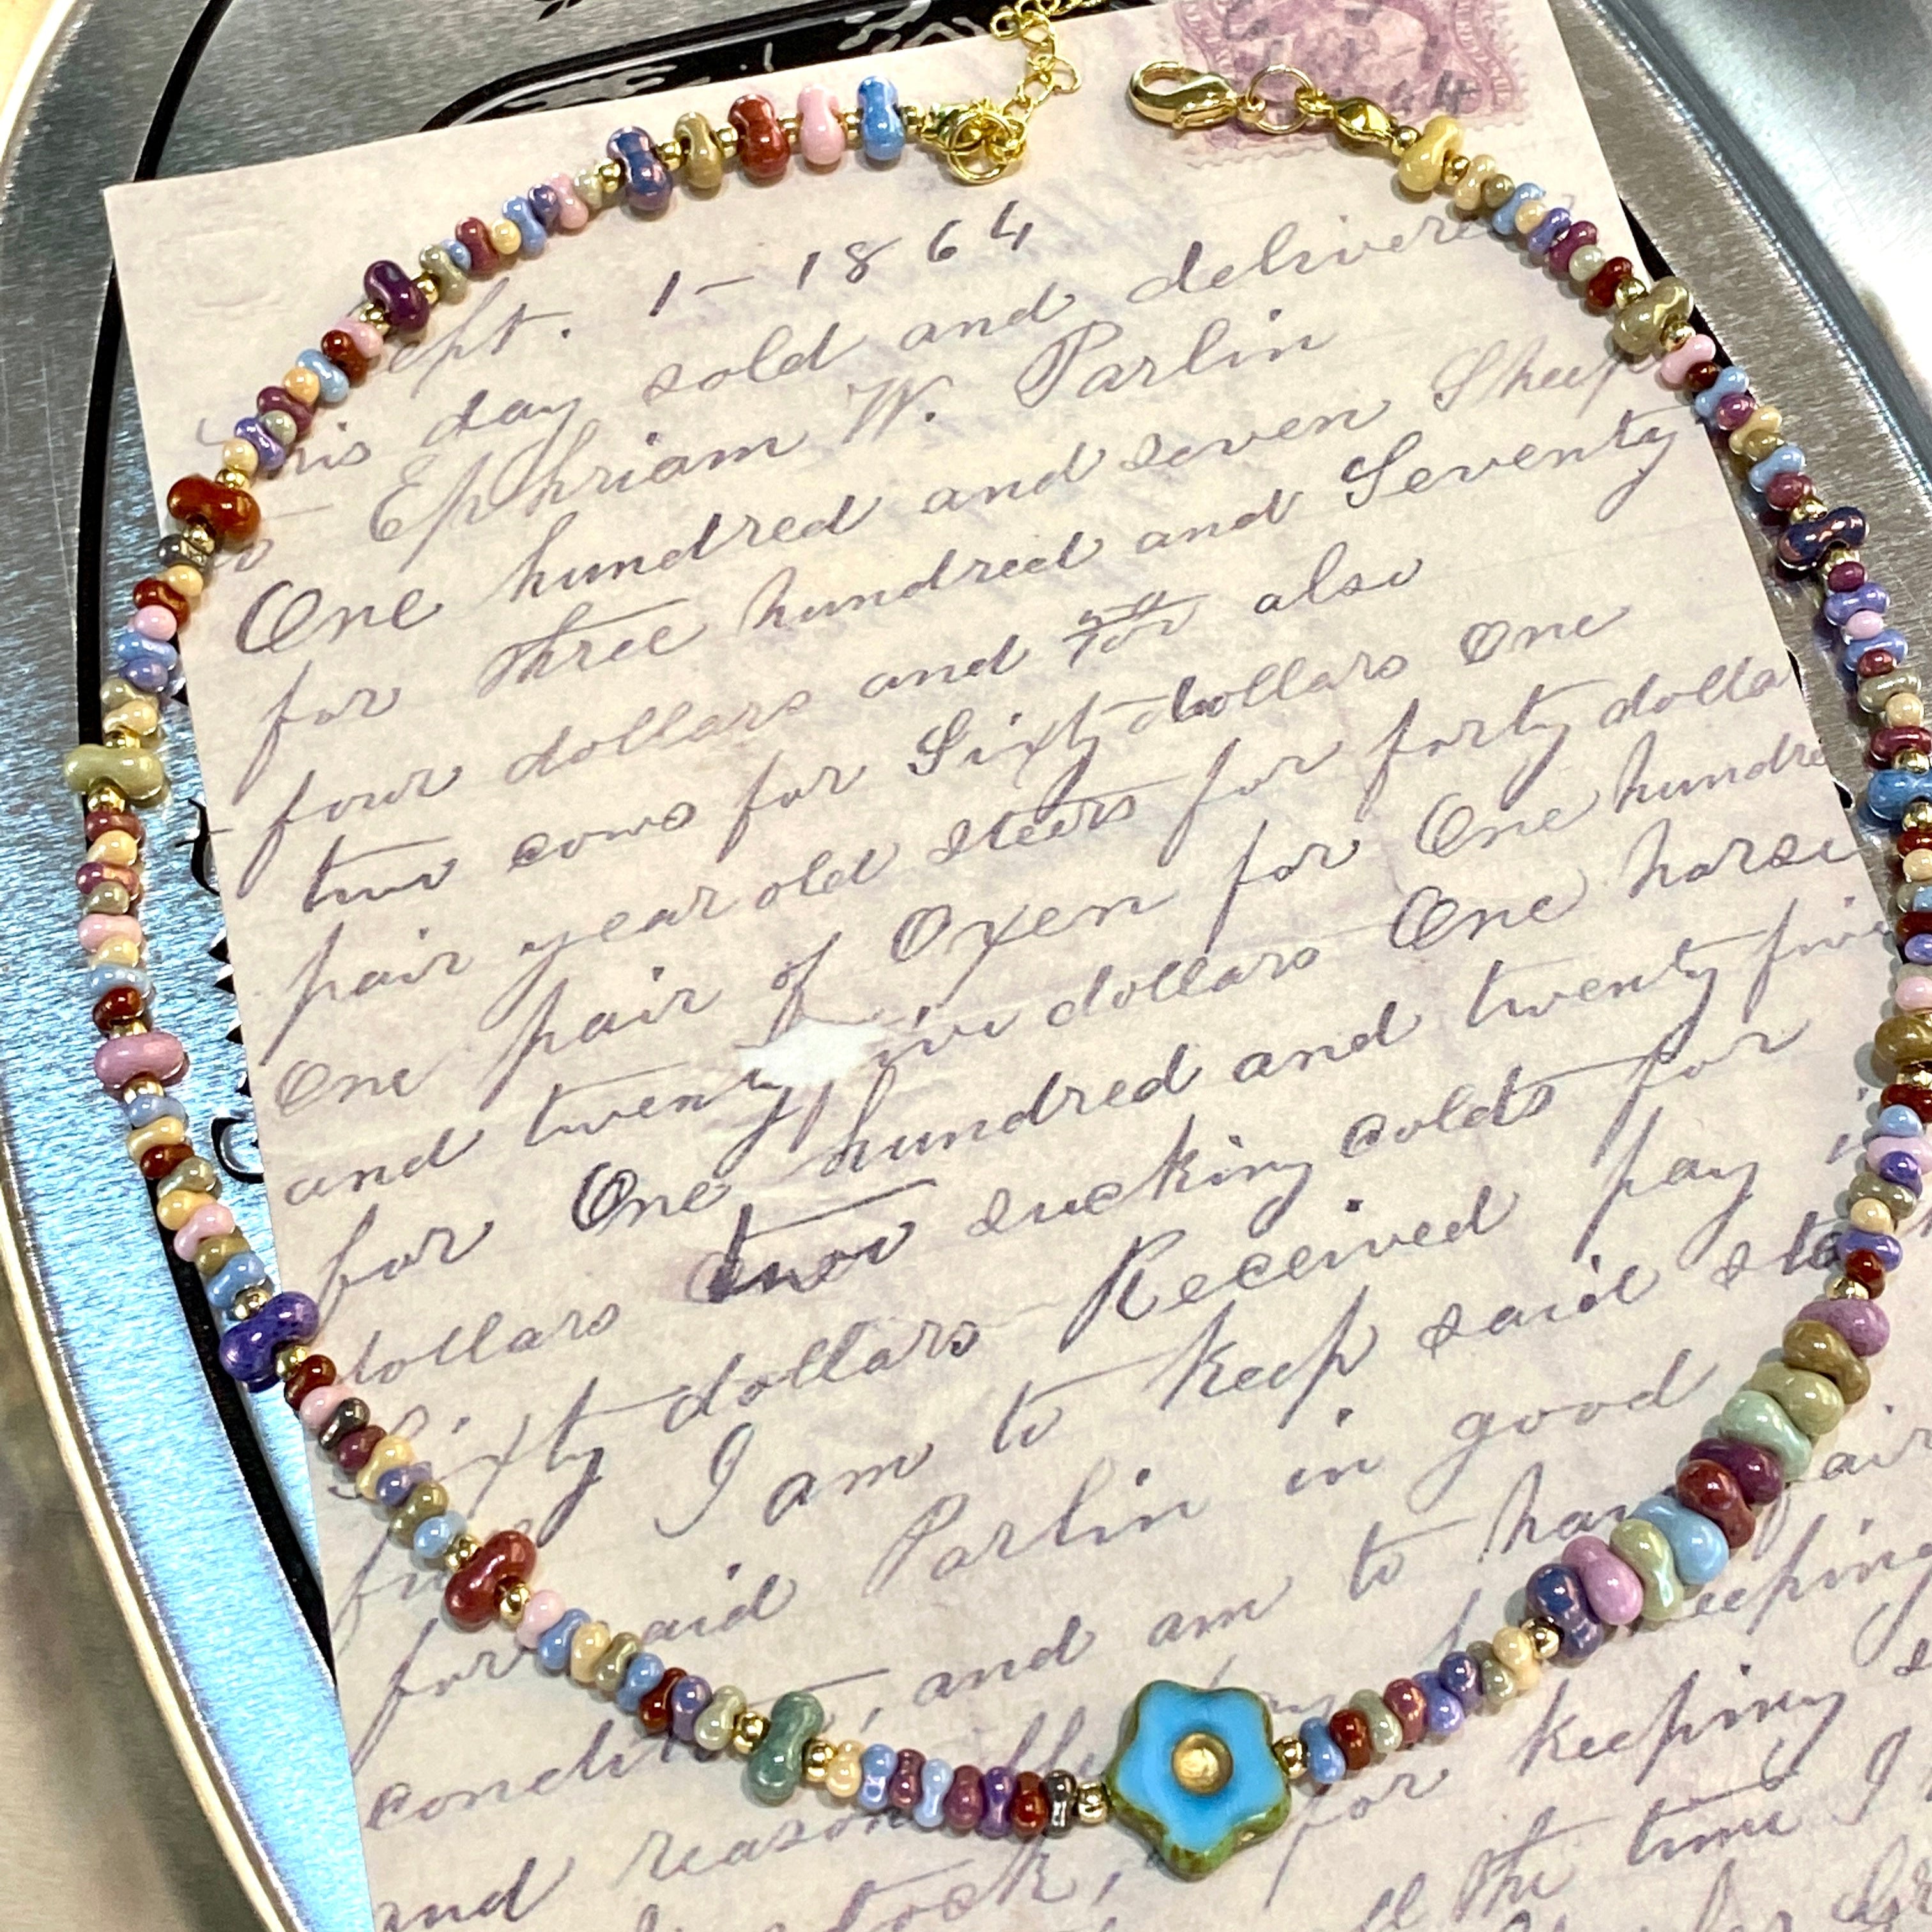 ept. 1 - 1864
his day sold and delivere
Ephriam W. Parlin
One hundred and seven Sheep
for three hundred and Seventy
four dollars and also
two cows for Sixty dollars One
pair year old steers for forty dolla
One pair of Oxen for One hundre
and twenty five dollars One horse
for One hundred and twenty five
dollars two sucking colds for
fifty dollars Received pay i
I am to keep said sto
for said Parlin in good
condit , and am to hav air
and reason for keeping
tock, all the time I